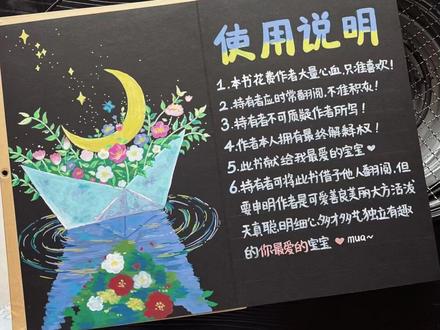 使用说明
1.本书花费作者大量心血,只准喜欢!
2.持有者应时常翻阅,不准积灰!
3.持有者不可质疑作者所写!
4.作者本人拥有最终解释权!
5.此书献给我最爱的宝宝♥
6.持有者可将此书借于他人翻阅,但
要申明作者是可爱善良美丽大方活泼
天真聪明细心多才多艺独立有趣
的你最爱的宝宝♥mua~